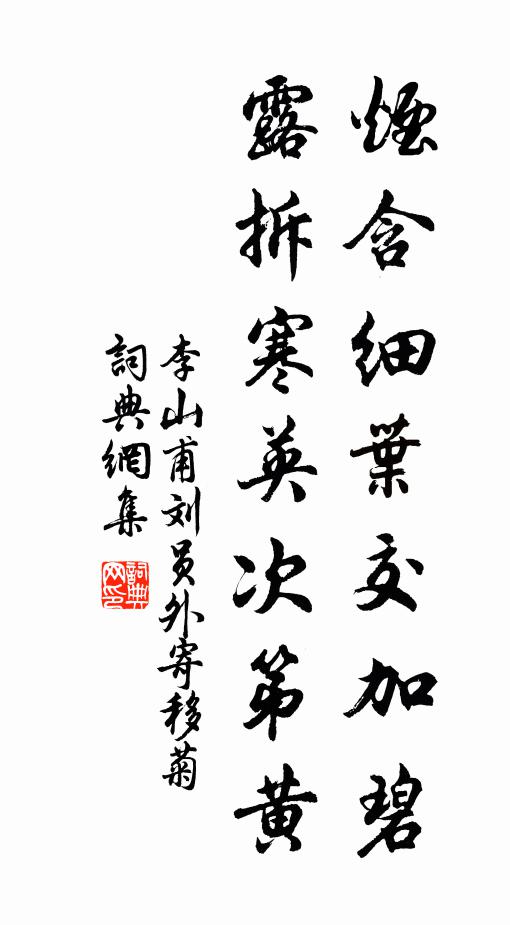 煙含細葉交加碧
露拆寒英次第黄
李山甫刘员外寄移菊
詞典網集
詞典网印